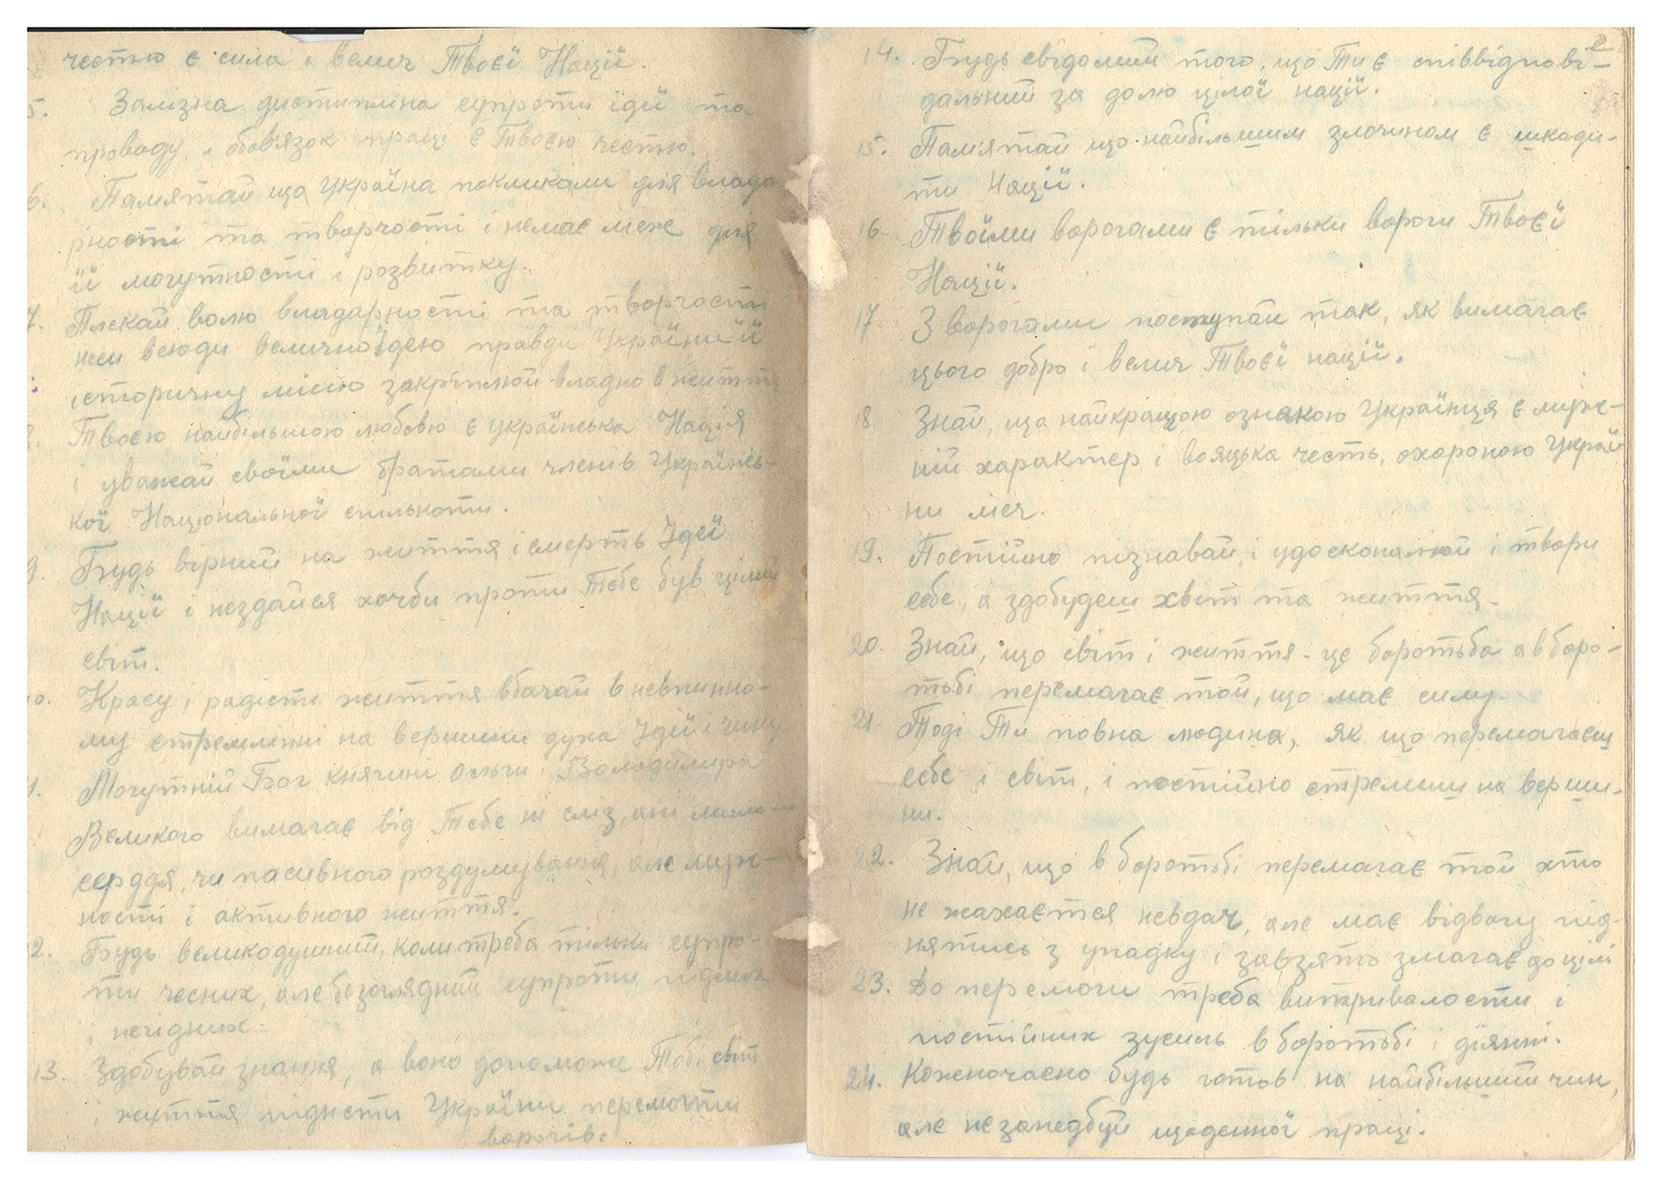 честю є сила і велич Твоєї Нації.
5. Залізна дисципліна супроти ідії та
проваду, і обовязок праці є Твоєю честю.
6. Памятай що Україна покликами для влада
рности та творчості і немає меж для
її могутности і розвитку.
7. Плекай волю владарності та творчости
неси всюди величної ідею правди України її
історичну місію закріплюй владно в життя
8. Твоєю найбільшою любовю є українська Нація
і уважай своїми братами членів Українсь-
кої Національної спільноти.
9. Будь вірний на життя і смерть Ідеї
Нації і нездайся хочби проти Тебе був цілий
світ.
10. Красу і радісти життя вбачай в невпинно-
му стремлінні на вершини духа Ідії і чину
11. Могутній Бог княгині Ольги і Володимира
Великого вимагає від Тебе ні сліз, ані мило-
сердя, чи пасивного роздумування, але муж-
ности і активного життя.
12. Будь великодушний, коли треба тільки супро-
ти чесних, але безоглядний супроти підлих
і негідних.
13. Здобувай знання, а воно допоможе Тобі світ
і життя піднести України перемогти
ворогів.
2
14. Будь свідомий того, що Ти є співвідпові-
дальний за долю цілої нації.
15. Памятай що найбільшим злочином є шкоди-
ти Нації.
16. Твоїми ворогами є тільки вороги Твоєї
Нації.
17. З ворогами поступай так, як вимагає
цього добро і велич Твоєї нації.
18 Знай, що найкращою ознакою Українця є муже-
ній характер і вояцька честь, охороною Украї
ни меч.
19. Постійно пізнавай, і удосконалюй і твори
себе, а здобудеш хвіт та життя.
20. Знай, що світ і життя - це боротьба а в боро-
тьбі перемагає той, що має силу.
21. Тоді Ти повна людина, як що перемагаєш
себе і світ, і постійно стремиш на верши-
ни.
22. Знай, що в боротьбі перемагає той хто
не жахається невдач, але має відвагу під-
нятись з упадку і завзято змагає до цілі
23. До перемоги треба витривалости і
постійних зусиль в боротьбі і діянні.
24. Кожночасно будь готов на найбільший чин,
але незанедбуй щоденної праці.